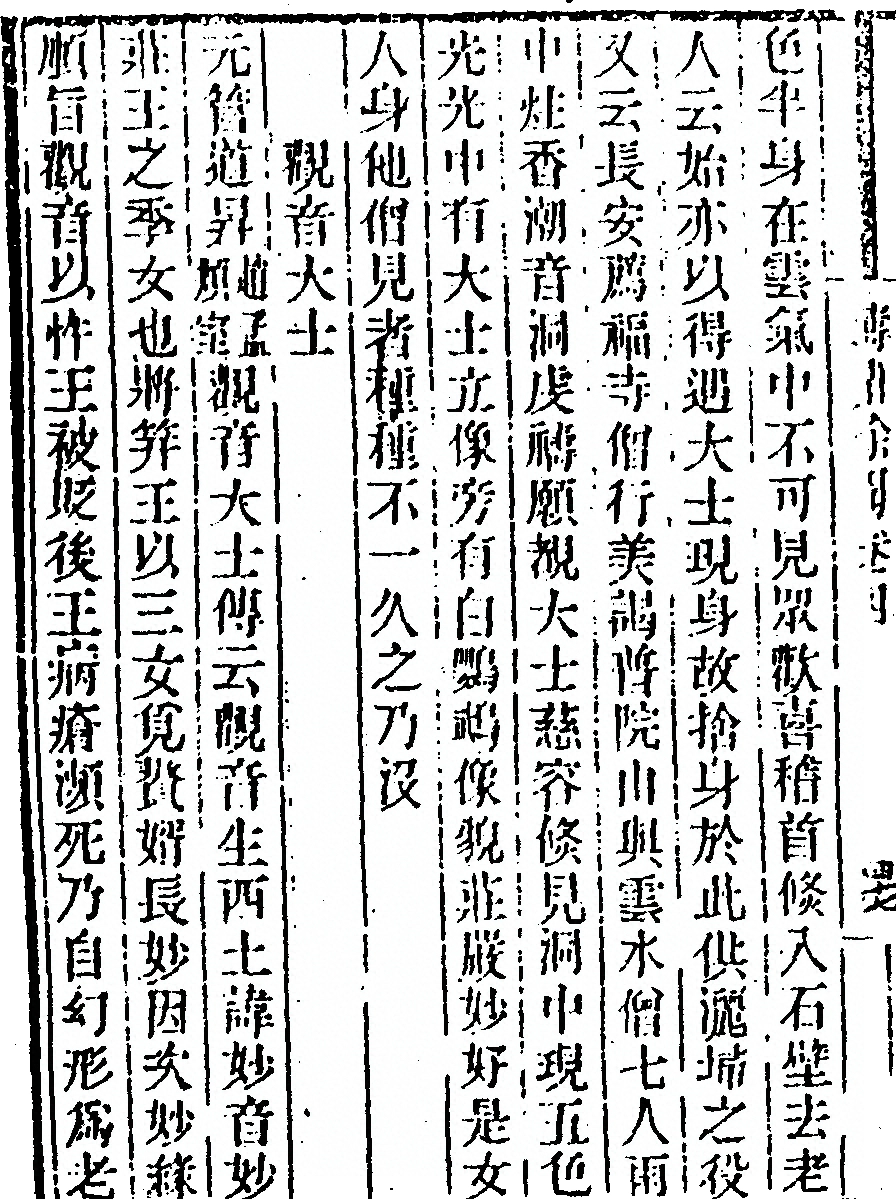 色半身在雲氣中不可見眾歡喜稽首倏入石壁去老
人云始亦以得遇大士現身故捨身於此供灑埽之役
又云長安薦福寺僧行美謁院由與雲水僧七人兩
中炷香潮音洞虔禱願覩大士慈容倏見洞中現五色
光光中有大士立像旁有白鸚鵡像貌莊嚴妙好是女
人身他僧見者種種不一久之乃沒
觀音大士
元管道昇趙孟頫室觀音大士傳云觀音生西土諱妙音妙
莊王之季女也將笄王以三女覓贅婿長妙因次妙縁
順旨觀音以忤王被貶後王病瘡瀕死乃自幻形為老